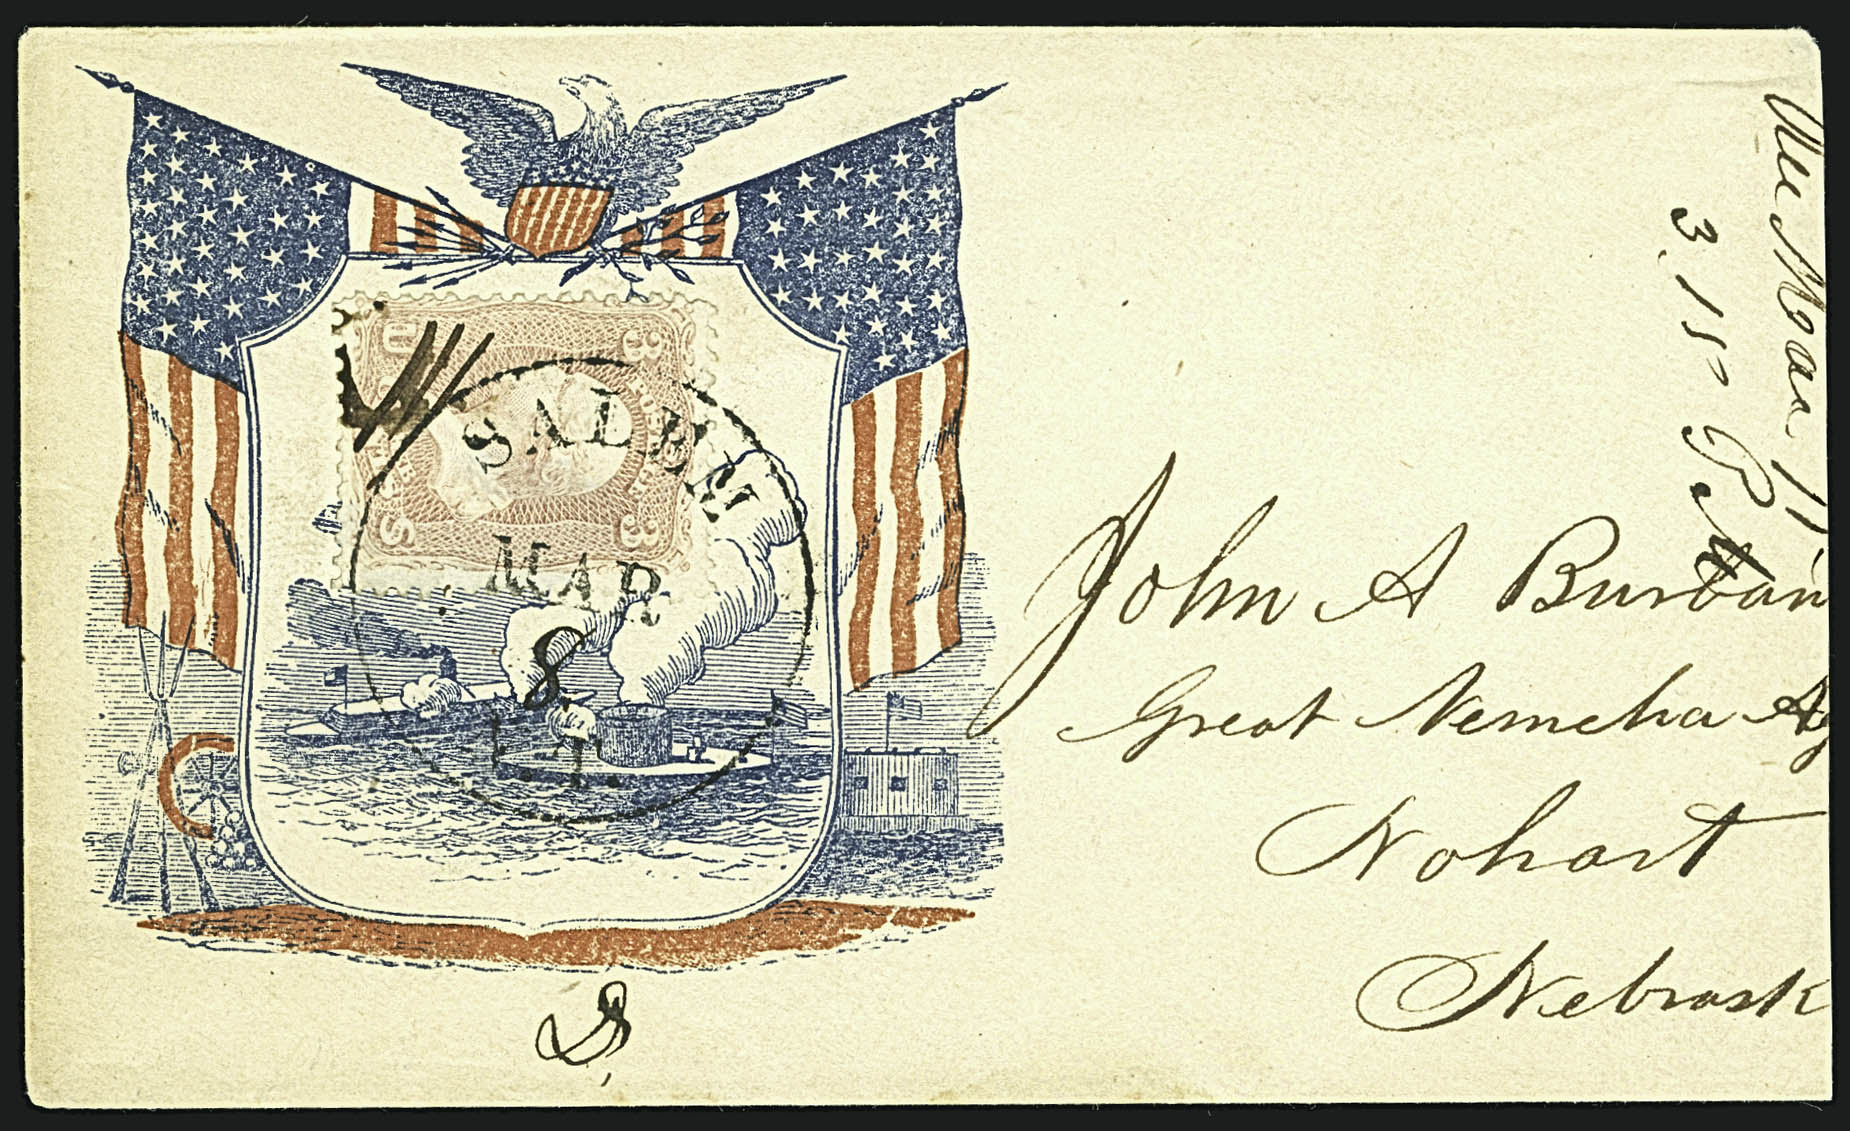 U S
3 3
SALEM
MAR
8
N.T.
John A Burban
Great Nemeha Ag
Nohart
Nebrask
S,